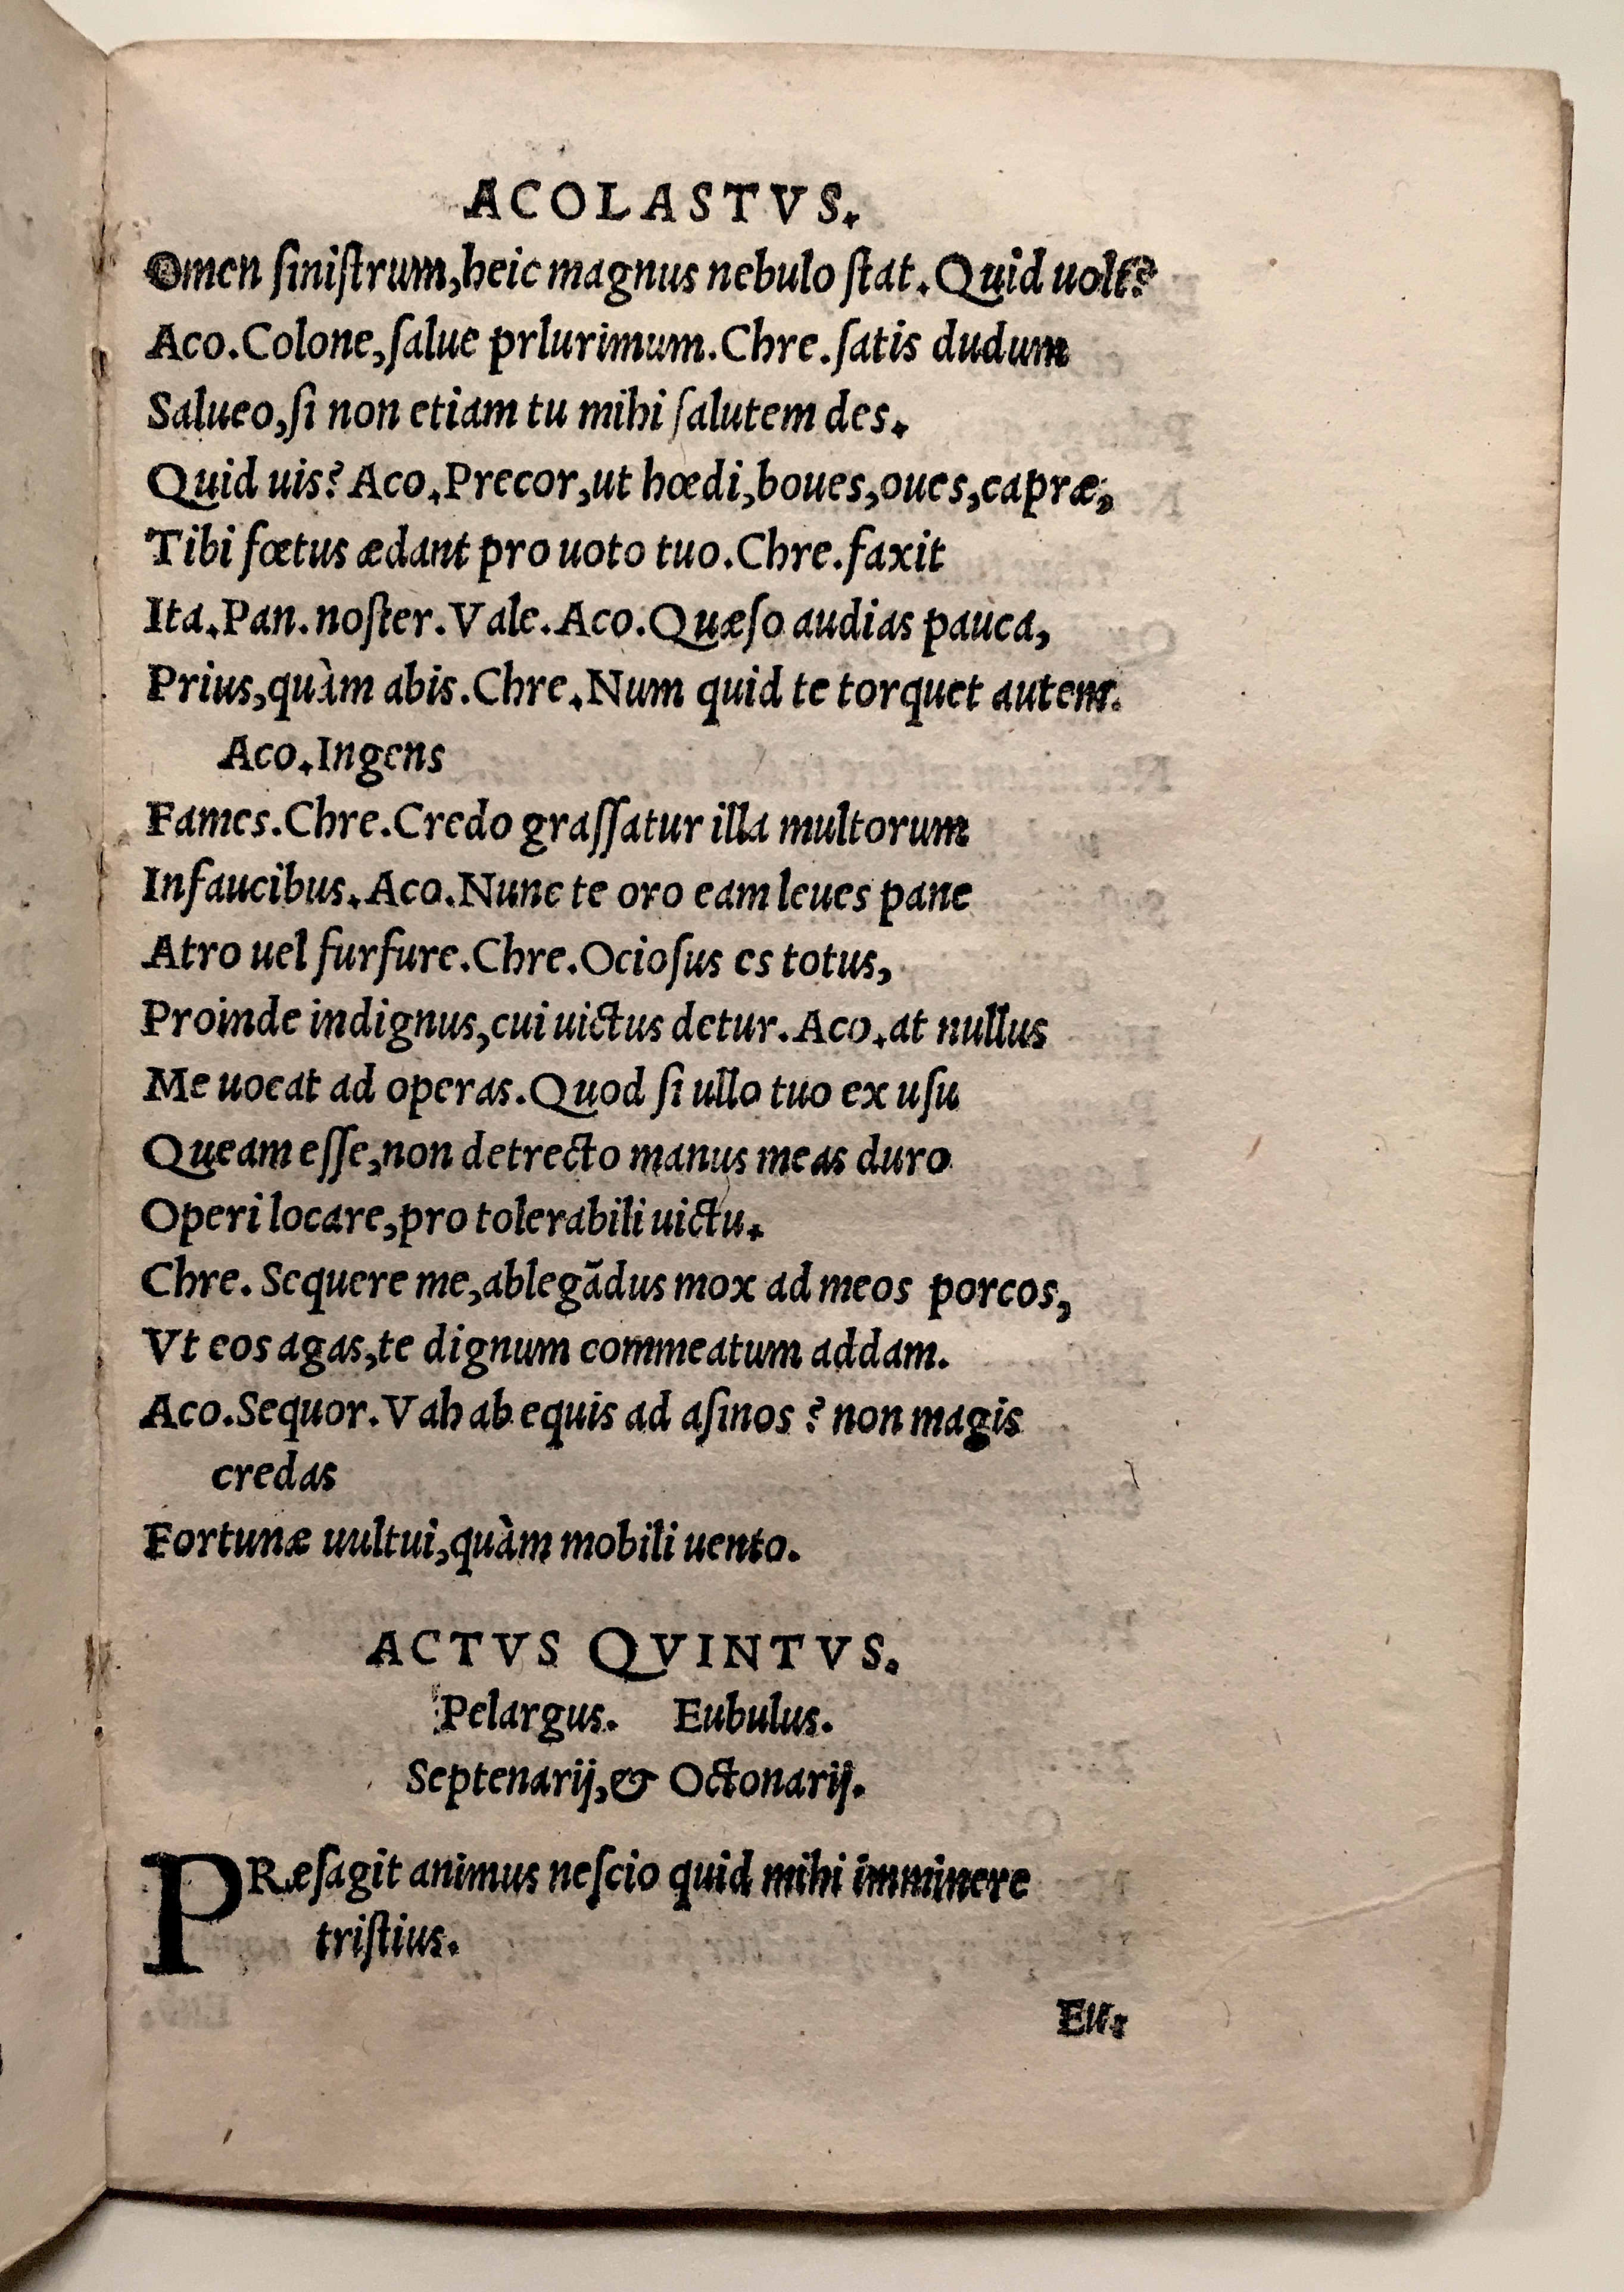 ACOLASTVS.
Omen ſiniſtrum,heic magnus nebulo ſtat.Quid uolt?
Aco.Colone,ſalue prlurimum.Chre.ſatis dudum
Salueo,ſi non etiam tu mihi ſalutem des.
Quid uis? Aco.Precor,ut hœdi,boues,oues,capræ,
Tibi fœtus ædant pro uoto tuo.Chre.faxit
Ita.Pan.noſter.Vale.Aco.Quæſo audias pauca,
Prius,quàm abis.Chre.Num quid te torquet autem.
Aco.Ingens
Fames.Chre.Credo graſſatur illa multorum
Infaucibus.Aco.Nunc te oro eam leues pane
Atro uel furfure.Chre.Ocioſus es totus,
Proinde indignus,cui uictus detur.Aco.at nullus
Me uocat ad operas.Quod ſi ullo tuo ex uſu
Queam eſſe,non detrecto manus meas duro
Operi locare,pro tolerabili uictu.
Chre. Sequere me,ablegãdus mox ad meos porcos,
Vt eos agas,te dignum commeatum addam.
Aco.Sequor.Vah ab equis ad aſinos ? non magis
credas
Fortunæ uultui,quàm mobili uento.
ACTVS QVINTVS.
Pelargus. Eubulus.
Septenarij,& Octonarij.
PRæſagit animus neſcio quid mihi imminere
triſtius.
Eu.